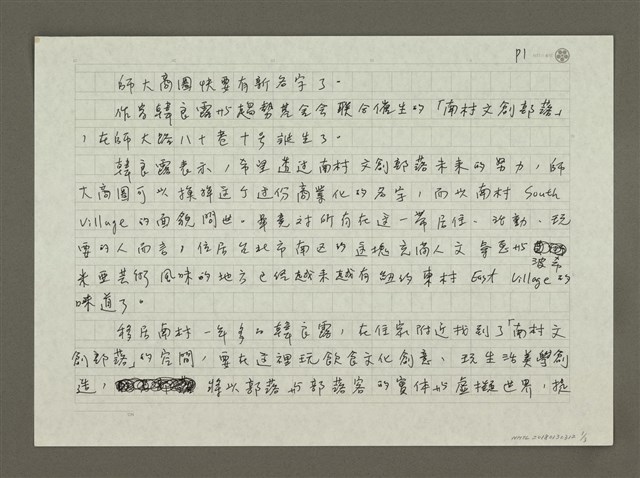 P1
師大商圈快要有新名字了。
作者韓良露與趨勢基金會聯合催生的「南村文創部落」
，在師大路八十巷十號誕生了。
韓良露表示，希望透過南村文創部落未來的努力，師
大商圈可以換掉這个过份商業化的名字，而以南村 South
Village 的面貌問世。畢竟对所有在這一帶居住、活動、玩
耍的人而言，位居台北市南區的這塊充滿人文華思與波希
米亞芸術風味的地方已经越来越有紐約東村 East Village的
味道了。
移居南村一年多的韓良露，在住家附近找到了「南村文
創部落」的空間，要在這裡玩飲食文化創意、玩生活美學創
造，將以部落與部落客的實体與虛擬世界，提